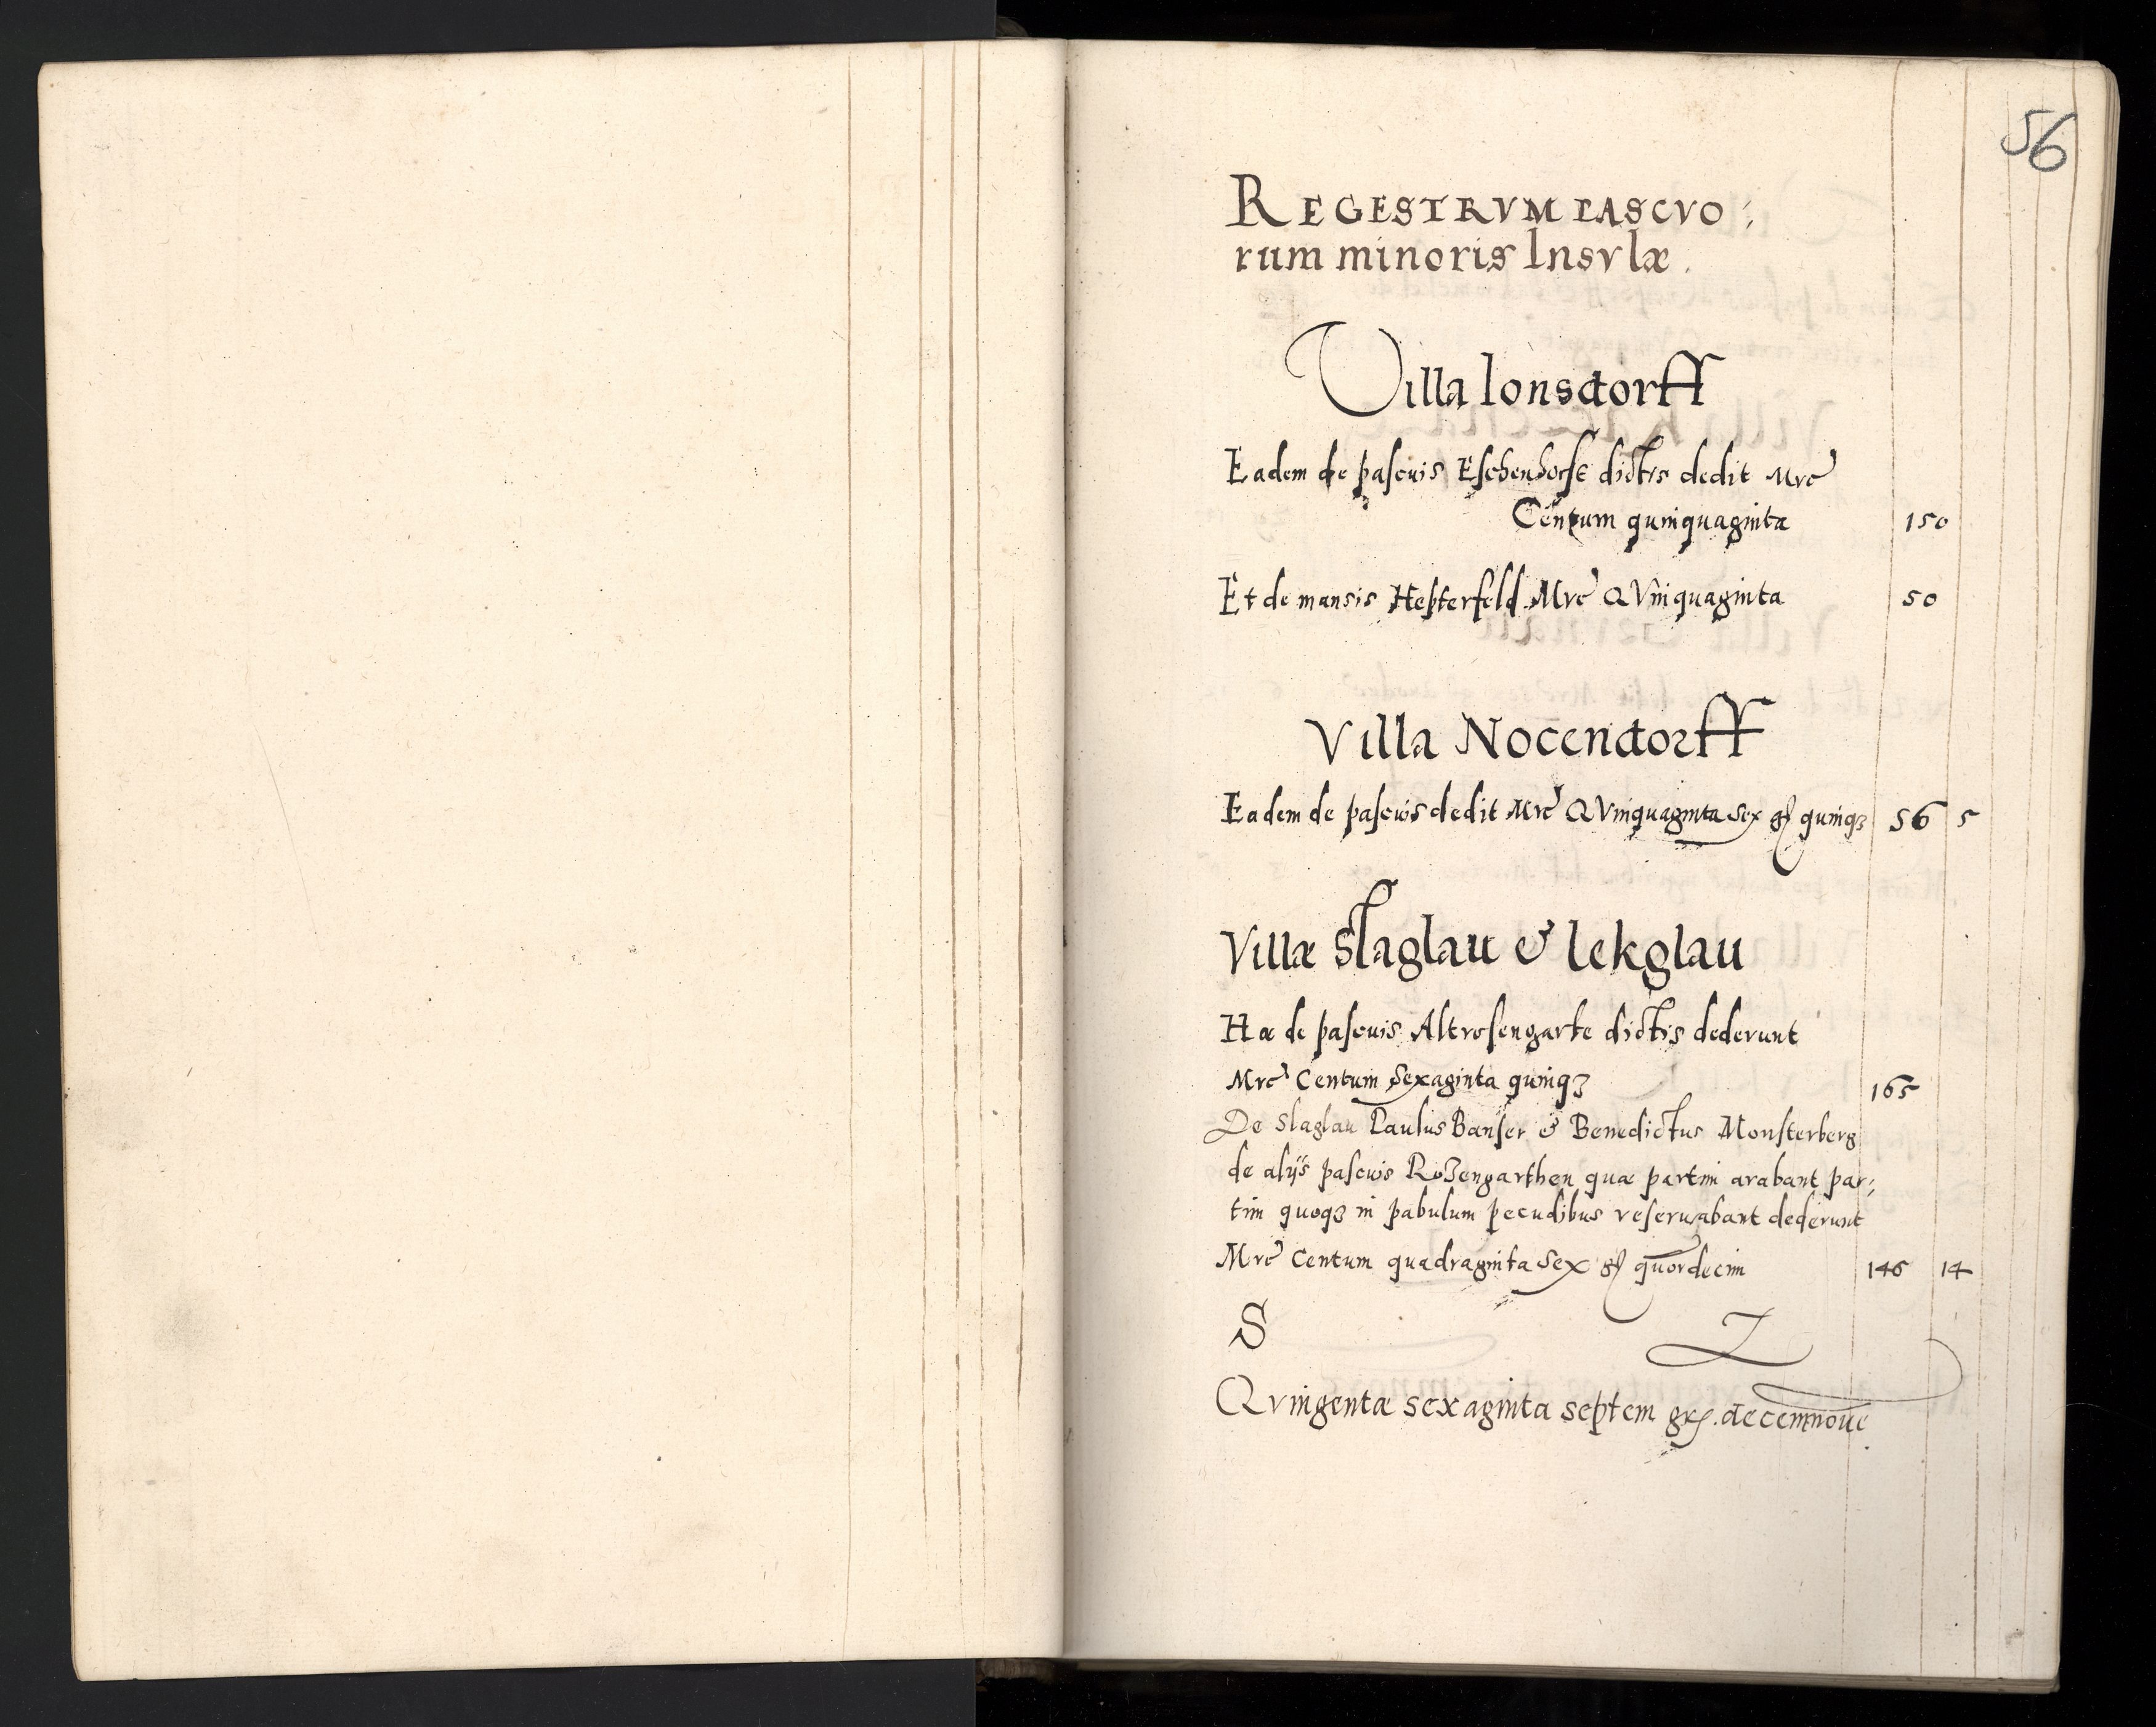 56
REGESTRVM PASCVO:
rum minoris Insvlæ.
Villa Ionsdorff
Eadem de pascuis Eschenhorst dictis dedit Mrc
Centum quinquaginta 150
Et de mansis Hepterfeld Mrc QVinquaginta 50
Villa Nocendorff
Eadem de pascuis dedit Mrc QVinquaginta sex gꝭ quinqꝫ 56 5
Villæ Slaglau & lekglau
Hæ de pascuis Altrosengarte dictis dederunt
Mrc Centum sexaginta quinqꝫ 165
De Slaglau Paulus Banser & Benedictus Monsterberg
de alijs pascuis Rozengarthen quæ partim arabant par:
tim quoqꝫ in pabulum pecudibus reseruabant dederunt
Mrc Centum quadraginta sex gꝭ quordecim 146 14
S
Qvingentæ sexaginta septem grꝭ. decemnoue